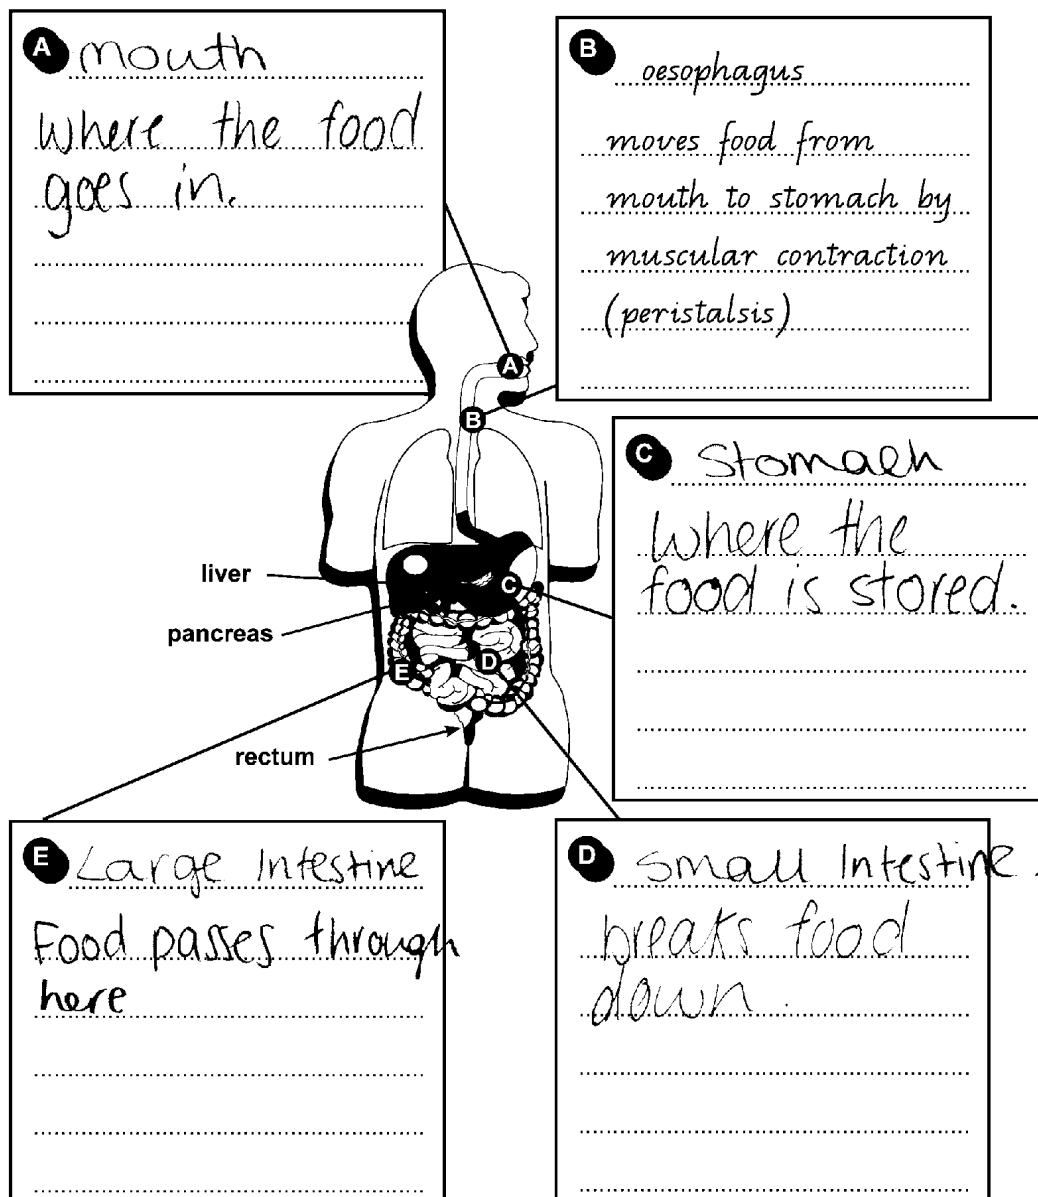 A mouth
where the food
goes in.
B oesophagus
moves food from
mouth to stomach by
muscular contraction
(peristalsis)
A
B
C Stomach
Where the
food is stored.
liver
pancreas
C
D
E
rectum
E Large Intestine
Food passes through
here
D Small Intestine.
breaks food
down.